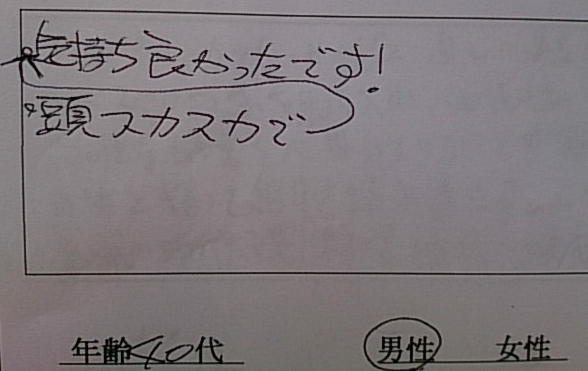 気持ち良かったです!
頭スカスカで
年齢40代 男性 女性